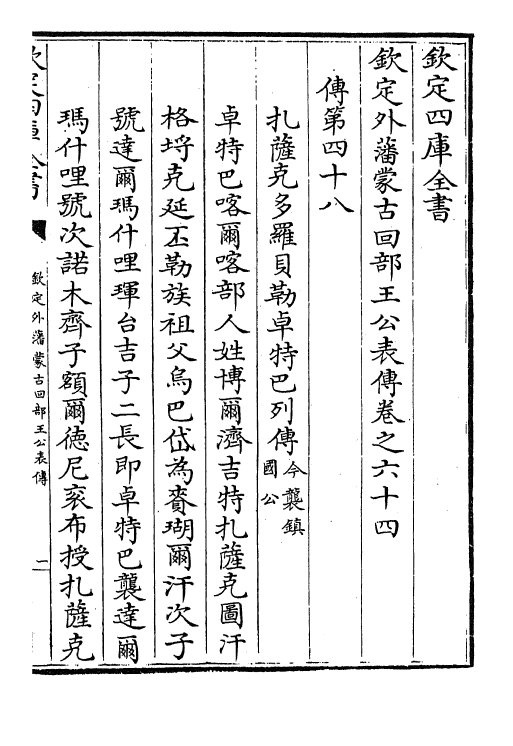 欽定四庫全書
欽定外藩蒙古回部王公表傳卷之六十四
傳第四十八
扎薩克多羅貝勒卓特巴列傳今襲鎮國公
卓特巴喀爾喀部人姓博爾濟吉特扎薩克圖汗
格埒克延丕勒族祖父烏巴岱為賚瑚爾汗次子
號達爾瑪什哩琿台吉子二長即卓特巴襲達爾
瑪什哩號次諾木齊子額爾德尼衮布授扎薩克
欽定四庫全書
欽定外藩蒙古回部王公表傳
一